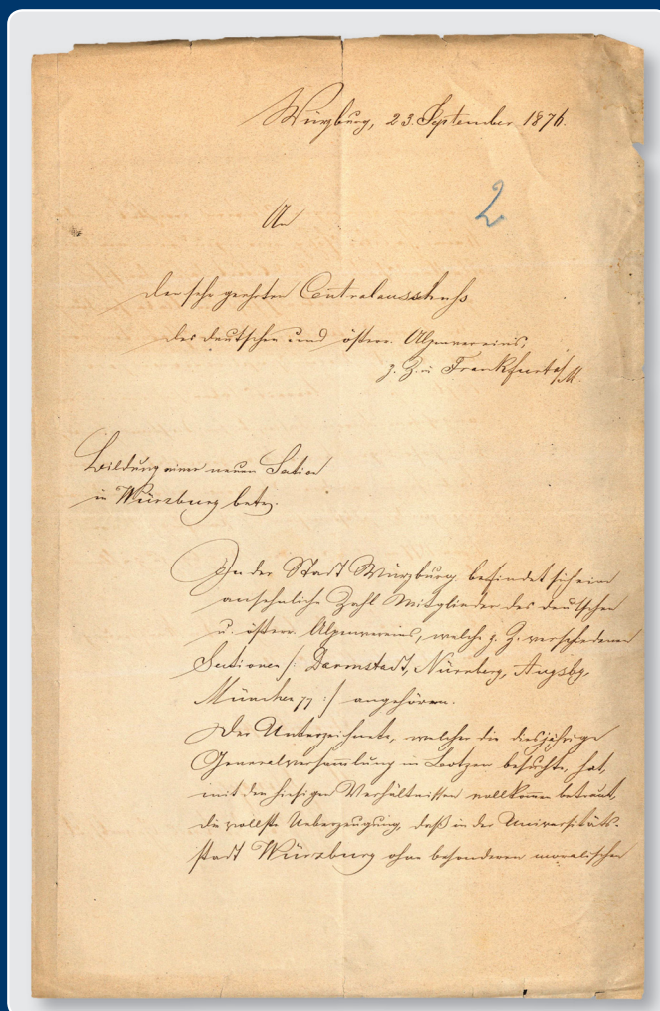 Würzburg, 23. September 1876.
2
An
den sehr geehrten Centralausschuss
des deutschen und österr. Alpenvereins,
z. Z. in Frankfurt a/M.
Bildung einer neuen Section
in Würzburg betr.
In der Stadt Würzburg befindet sich eine
ansehnliche Zahl Mitglieder des deutschen
u. österr. Alpenvereins, welche z. Z. verschiedenen
Sectionen /: Darmstadt, Nürnberg, Augsbg,
München :/ angehören.
Der Unterzeichnete, welcher die diesjährige
Generalversammlung in Botzen besuchte, hat,
mit den hiesigen Verhältnissen vollkommen betraut,
die vollste Ueberzeugung, daß in der Universitäts-
stadt Würzburg ohne besonderen moralischen